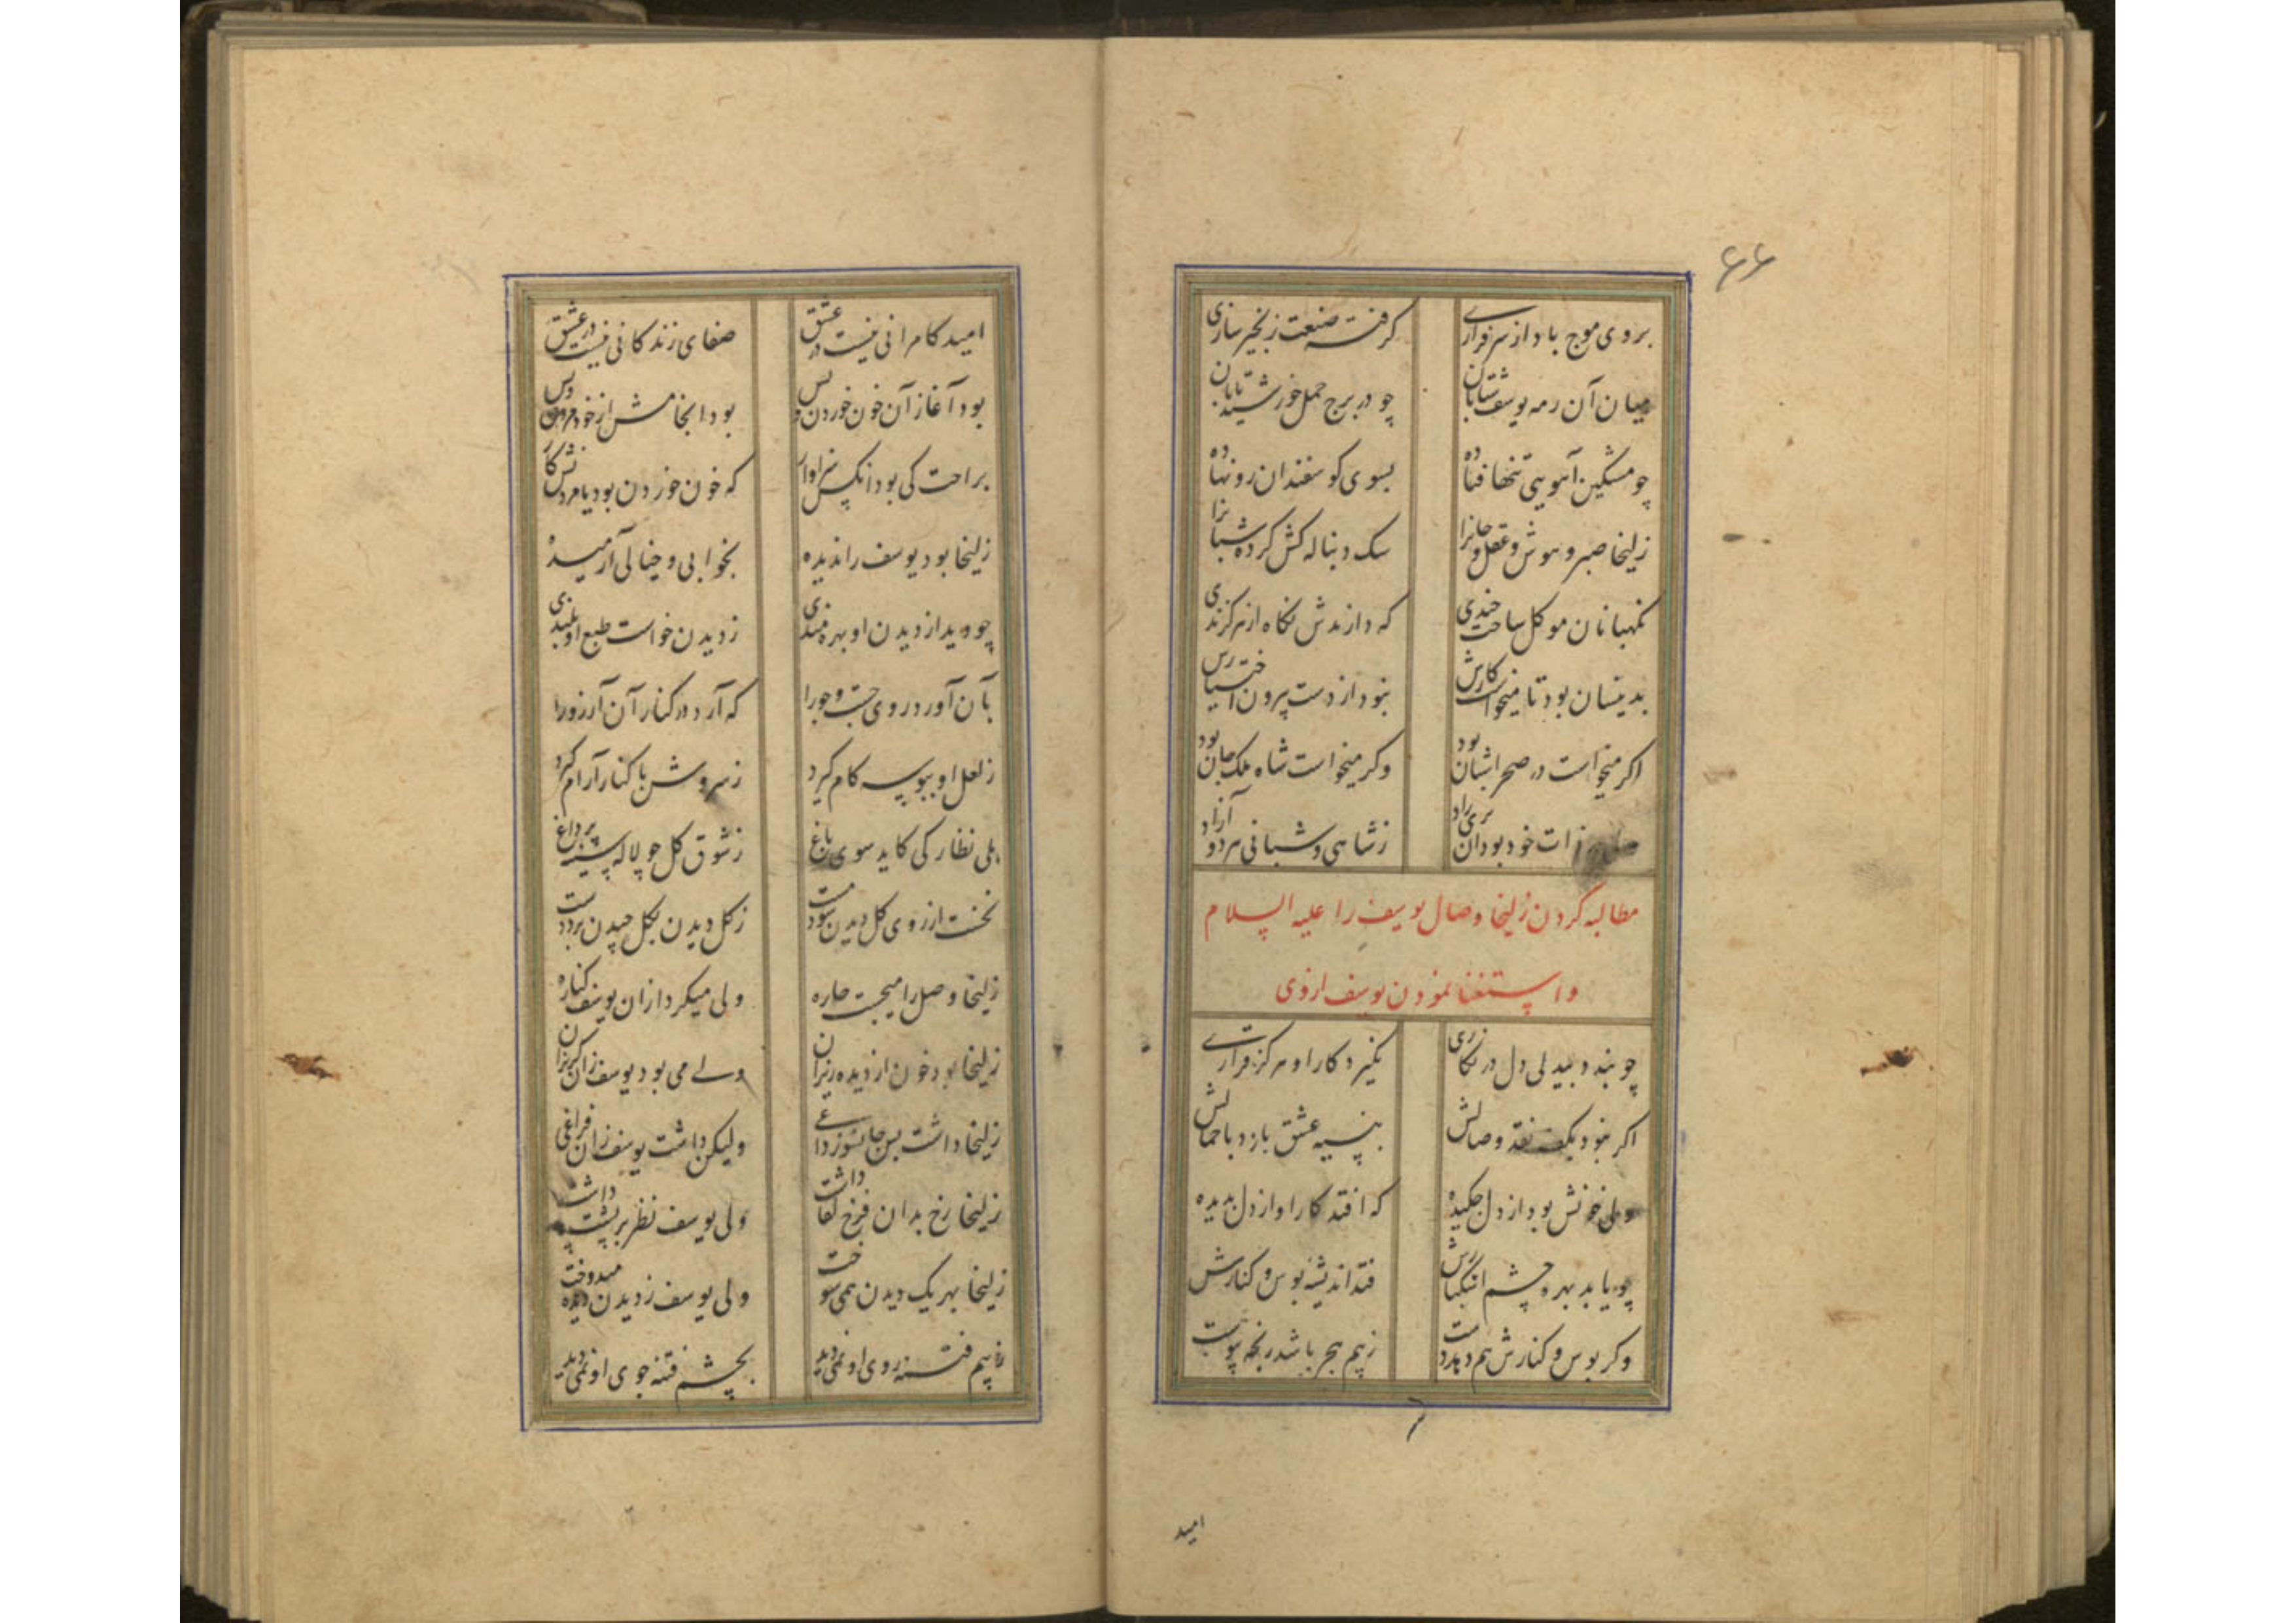 ۶۶
بروی موج باد از سرفرازی گرفته صنعت زنجیرسازی
میان آن رمه یوسف شتابان چو در برج حمل خورشید تابان
چو مشکین آهویی تنها فتاده بسوی کوسفندان رو نهاده
زلیخا صبر و هوش و عقل و جانرا سک دنباله کش کرده شبانرا
نکهبانان موکل ساخت چندی که دارندش نکاه از هر کزندی
بدینسان بود تا میخواست کارش نبود از دست بیرون اختیارش
اکر میخواست در صحرا شبان بود وکر میخواست شاه ملک جان بود
ولی در ذات خود بود آن پری زاد ز شاهی و شبانی هر دو آزاد
مطالبه کردن زلیخا وصال یوسف را علیه السلام
و استغنا نمودن یوسف از وی
چو بندد بیدلی دل در نکاری نکیرد کار او هرکز قراری
اکر نبود بکف نقد وصالش بنسیه عشق بازد با جمالش
ولی خونش بود از دل چکیده که افتد کار او از دل بدیده
چو یابد بهره چشم اشکبارش فتد اندیشه بوس و کنارش
وکر بوس و کنارش هم دهد دست ز بیم هجر باشد رنجه پیوست
امید
امید کامرانی نیست در عشق صفای زندکانی نیست در عشق
بود آغاز آن خون خوردن و بس بود انجامش از خود مردن و بس
براحت کی بود آنکس سزاوار که خون خوردن بود یا مردنش کار
زلیخا بود یوسف را ندیده بخوابی و خیالی آرمیده
چو دید از دیدن او بهره مندی ز دیدن خواست طبع او بلندی
بآن آورد روی جست و جو را که آرد در کنار آن آرزو را
ز لعل او ببوسه کام کیرد ز سروش با کنار آرام کیرد
بلی نظارکی کاید سوی باغ ز شوق کل چو لاله سینه پر داغ
نخست از روی کل دیدن شود مست ز کل دیدن بکل چیدن برد دست
زلیخا وصل را میجست چاره ولی میکرد از آن یوسف کناره
زلیخا بود خون از دیده ریزان ولی می بود یوسف زان کریزان
زلیخا داشت بس جانسوز داغی ولیکن داشت یوسف زان فراغی
زلیخا رخ بدان فرخ لقا داشت ولی یوسف نظر بر پشت پا داشت
زلیخا بهر یک دیدن همی سوخت ولی یوسف ز دیدن دیده میدوخت
ز بیم فتنه روی او نمی دید بچشم فتنه جوی او نمی دید